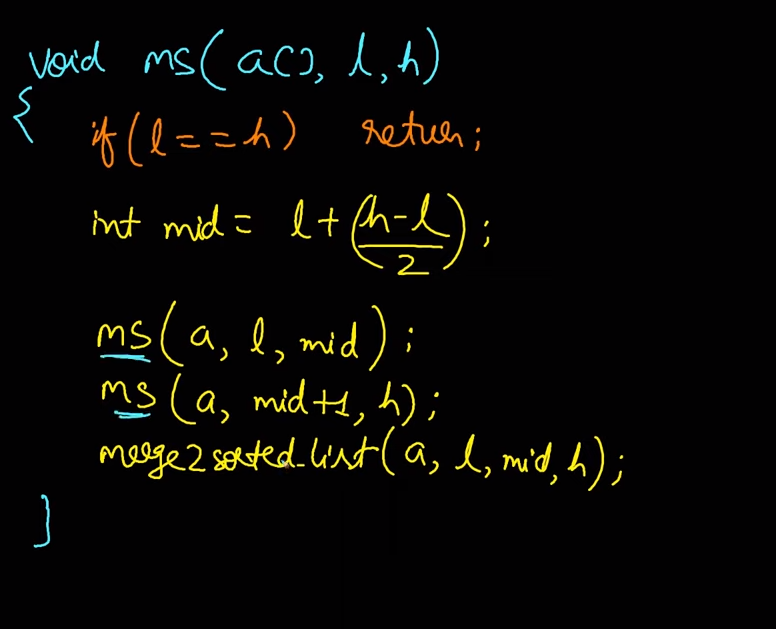 void ms(a[], l, h)
{
if(l==h) return;
int mid = l+(h-l/2);
ms(a, l, mid);
ms(a, mid+1, h);
merge2sorted_list(a, l, mid, h);
}